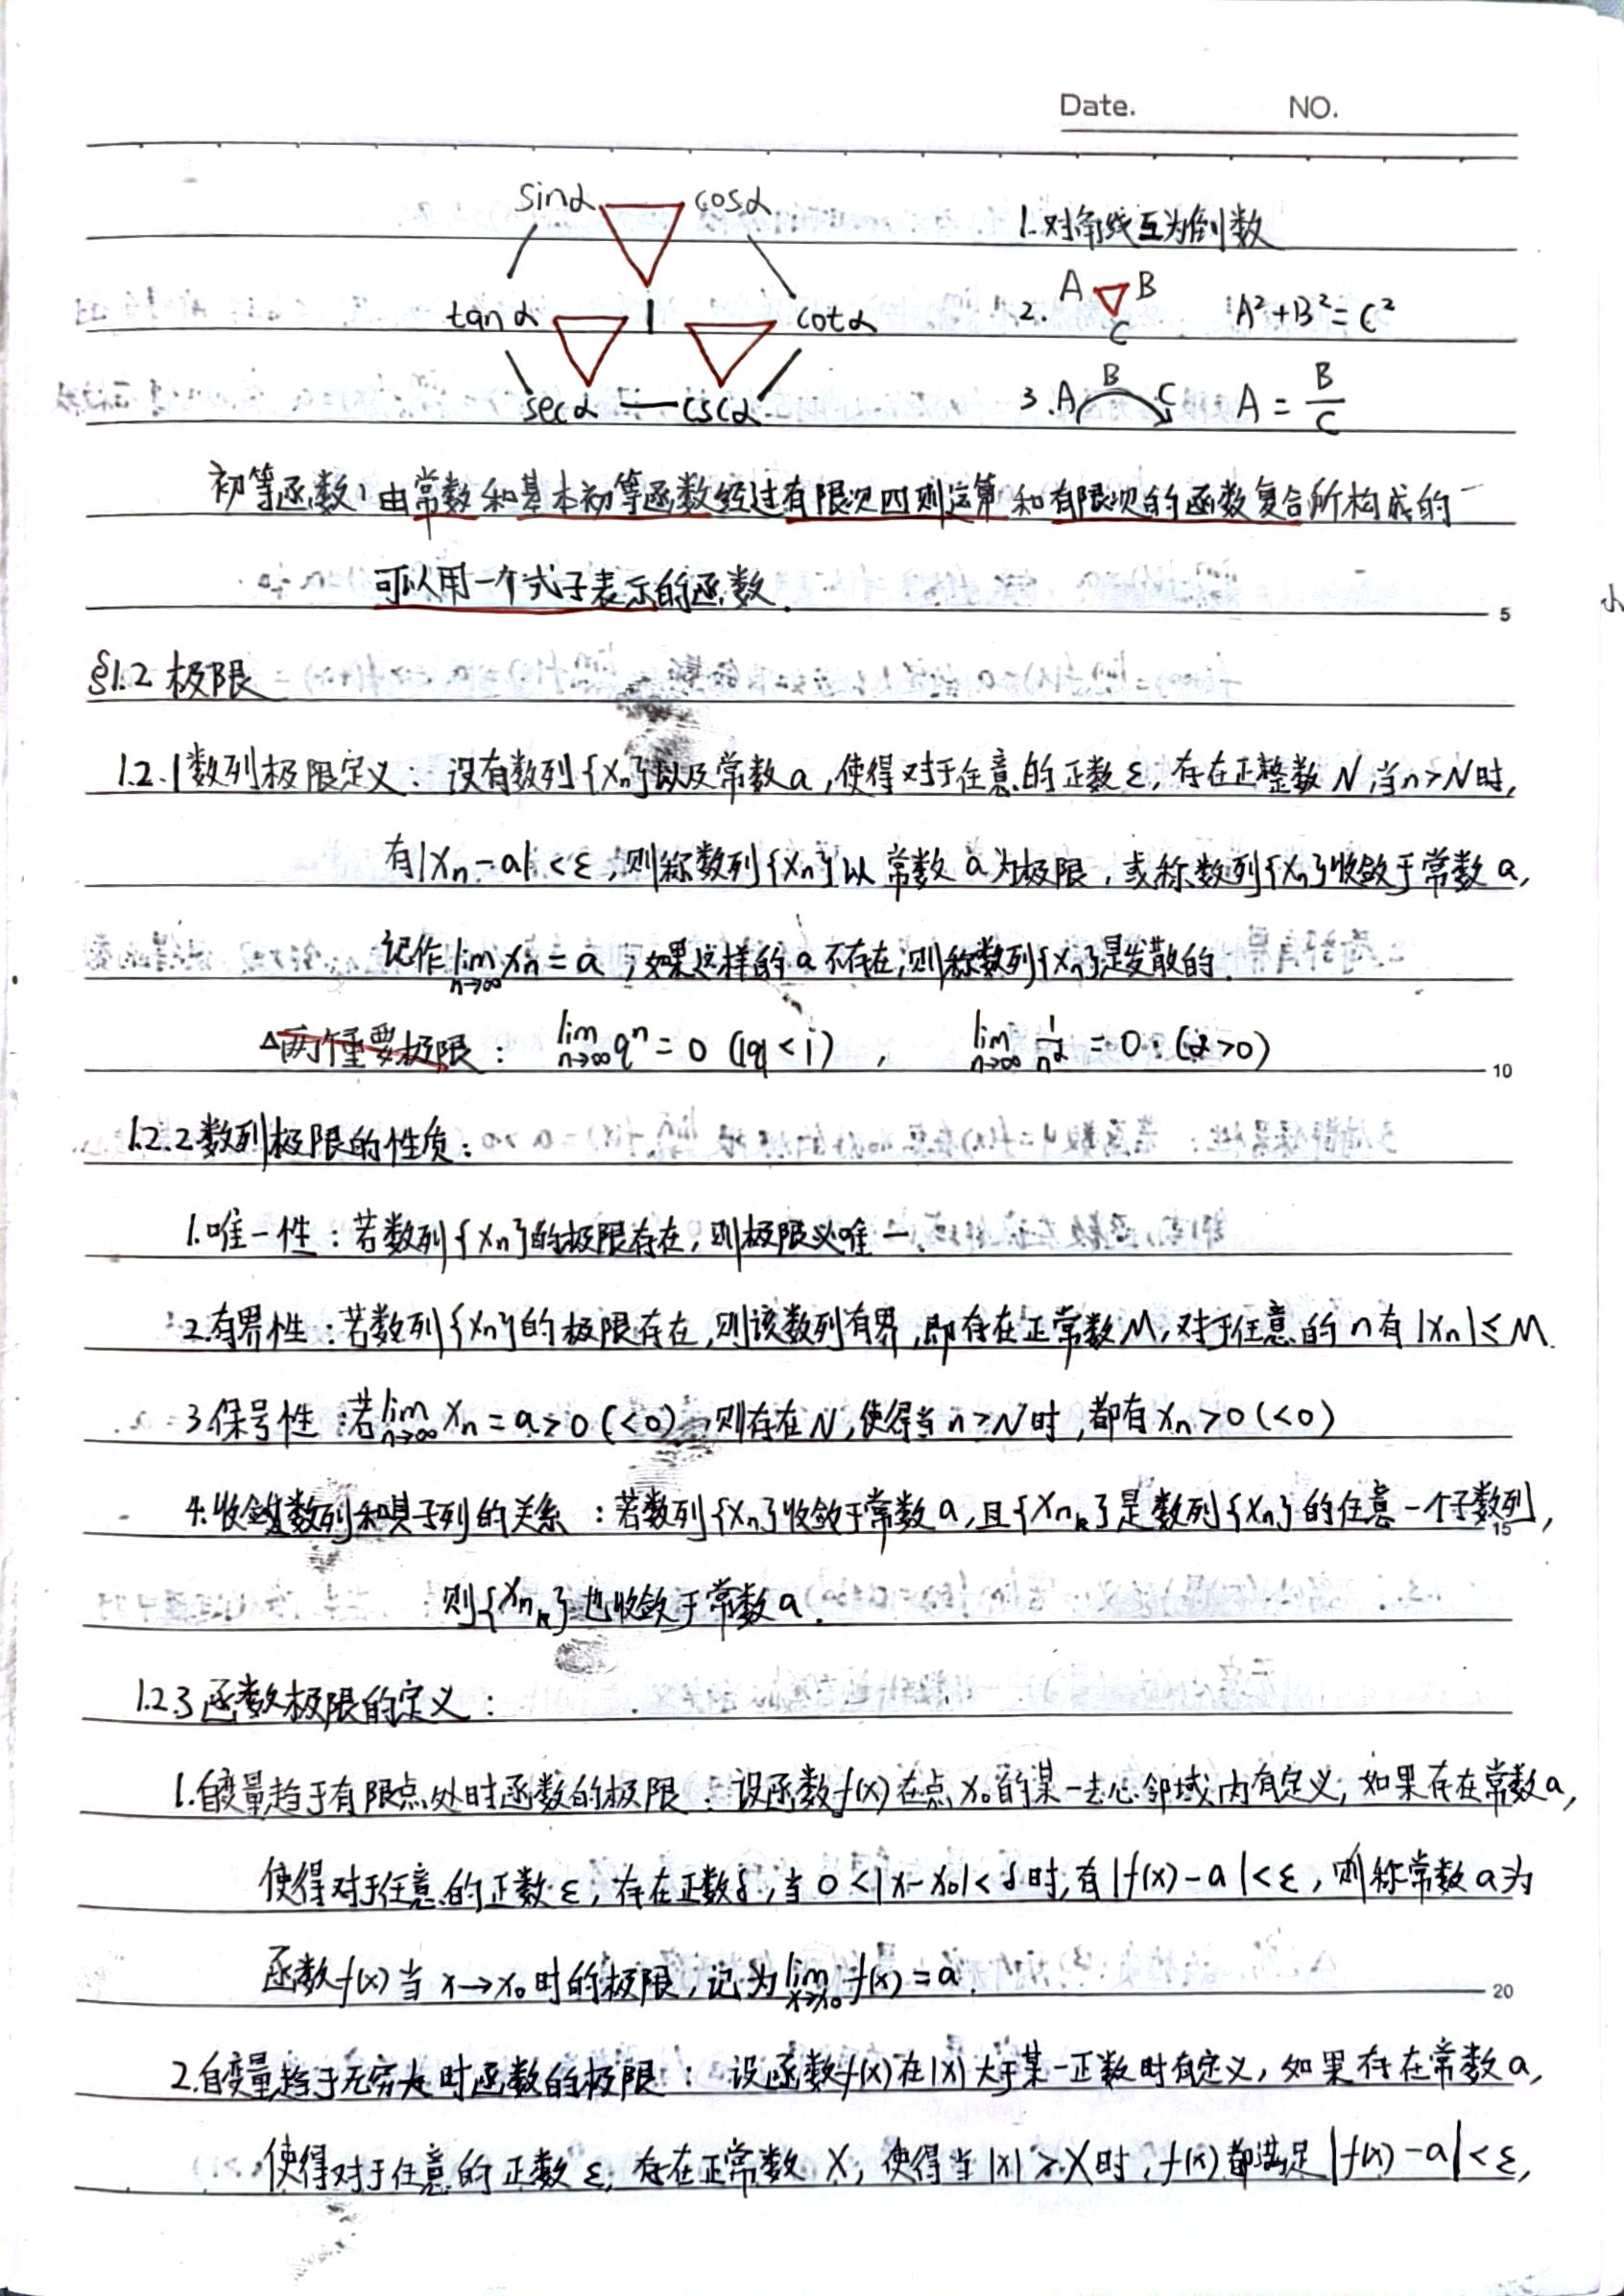 Date. NO.
sinα cosα 1.对角线互为倒数
tanα 1 cotα 2. A B C A²+B²=C²
secα cscα 3. A B C A = B/C
初等函数:由常数和基本初等函数经过有限次四则运算和有限次的函数复合所构成的
可以用一个式子表示的函数.
5
§1.2 极限
1.2.1数列极限定义: 设有数列{Xn}以及常数a,使得对于任意的正数ε,存在正整数N,当n>N时,
有|Xn-a|<ε,则称数列{Xn}以常数a为极限,或称数列{Xn}收敛于常数a,
记作lim n→∞ Xn=a,如果这样的a不存在,则称数列{Xn}是发散的.
Δ两个重要极限: lim n→∞ qⁿ=0 (|q|<1), lim n→∞ 1/n^α =0 (α>0)
10
1.2.2数列极限的性质:
1.唯一性:若数列{Xn}的极限存在,则极限必唯一.
2.有界性:若数列{Xn}的极限存在,则该数列有界,即存在正常数M,对于任意的n有|Xn|≤M.
3.保号性:若lim n→∞ Xn=a>0(<0),则存在N,使得当n>N时,都有Xn>0(<0)
4.收敛数列和其子列的关系:若数列{Xn}收敛于常数a,且{Xnₖ}是数列{Xn}的任意一个子数列,
15
则{Xnₖ}也收敛于常数a.
1.2.3函数极限的定义:
1.自变量趋于有限点处时函数的极限:设函数f(x)在点X₀的某一去心邻域内有定义,如果存在常数a,
使得对于任意的正数ε,存在正数δ,当0<|x-x₀|<δ时,有|f(x)-a|<ε,则称常数a为
函数f(x)当x→x₀时的极限,记为lim x→x₀ f(x)=a.
20
2.自变量趋于无穷大时函数的极限: 设函数f(x)在|x|大于某一正数时有定义,如果存在常数a,
使得对于任意的正数ε,存在正常数X,使得当|x|>X时,f(x)都满足|f(x)-a|<ε,